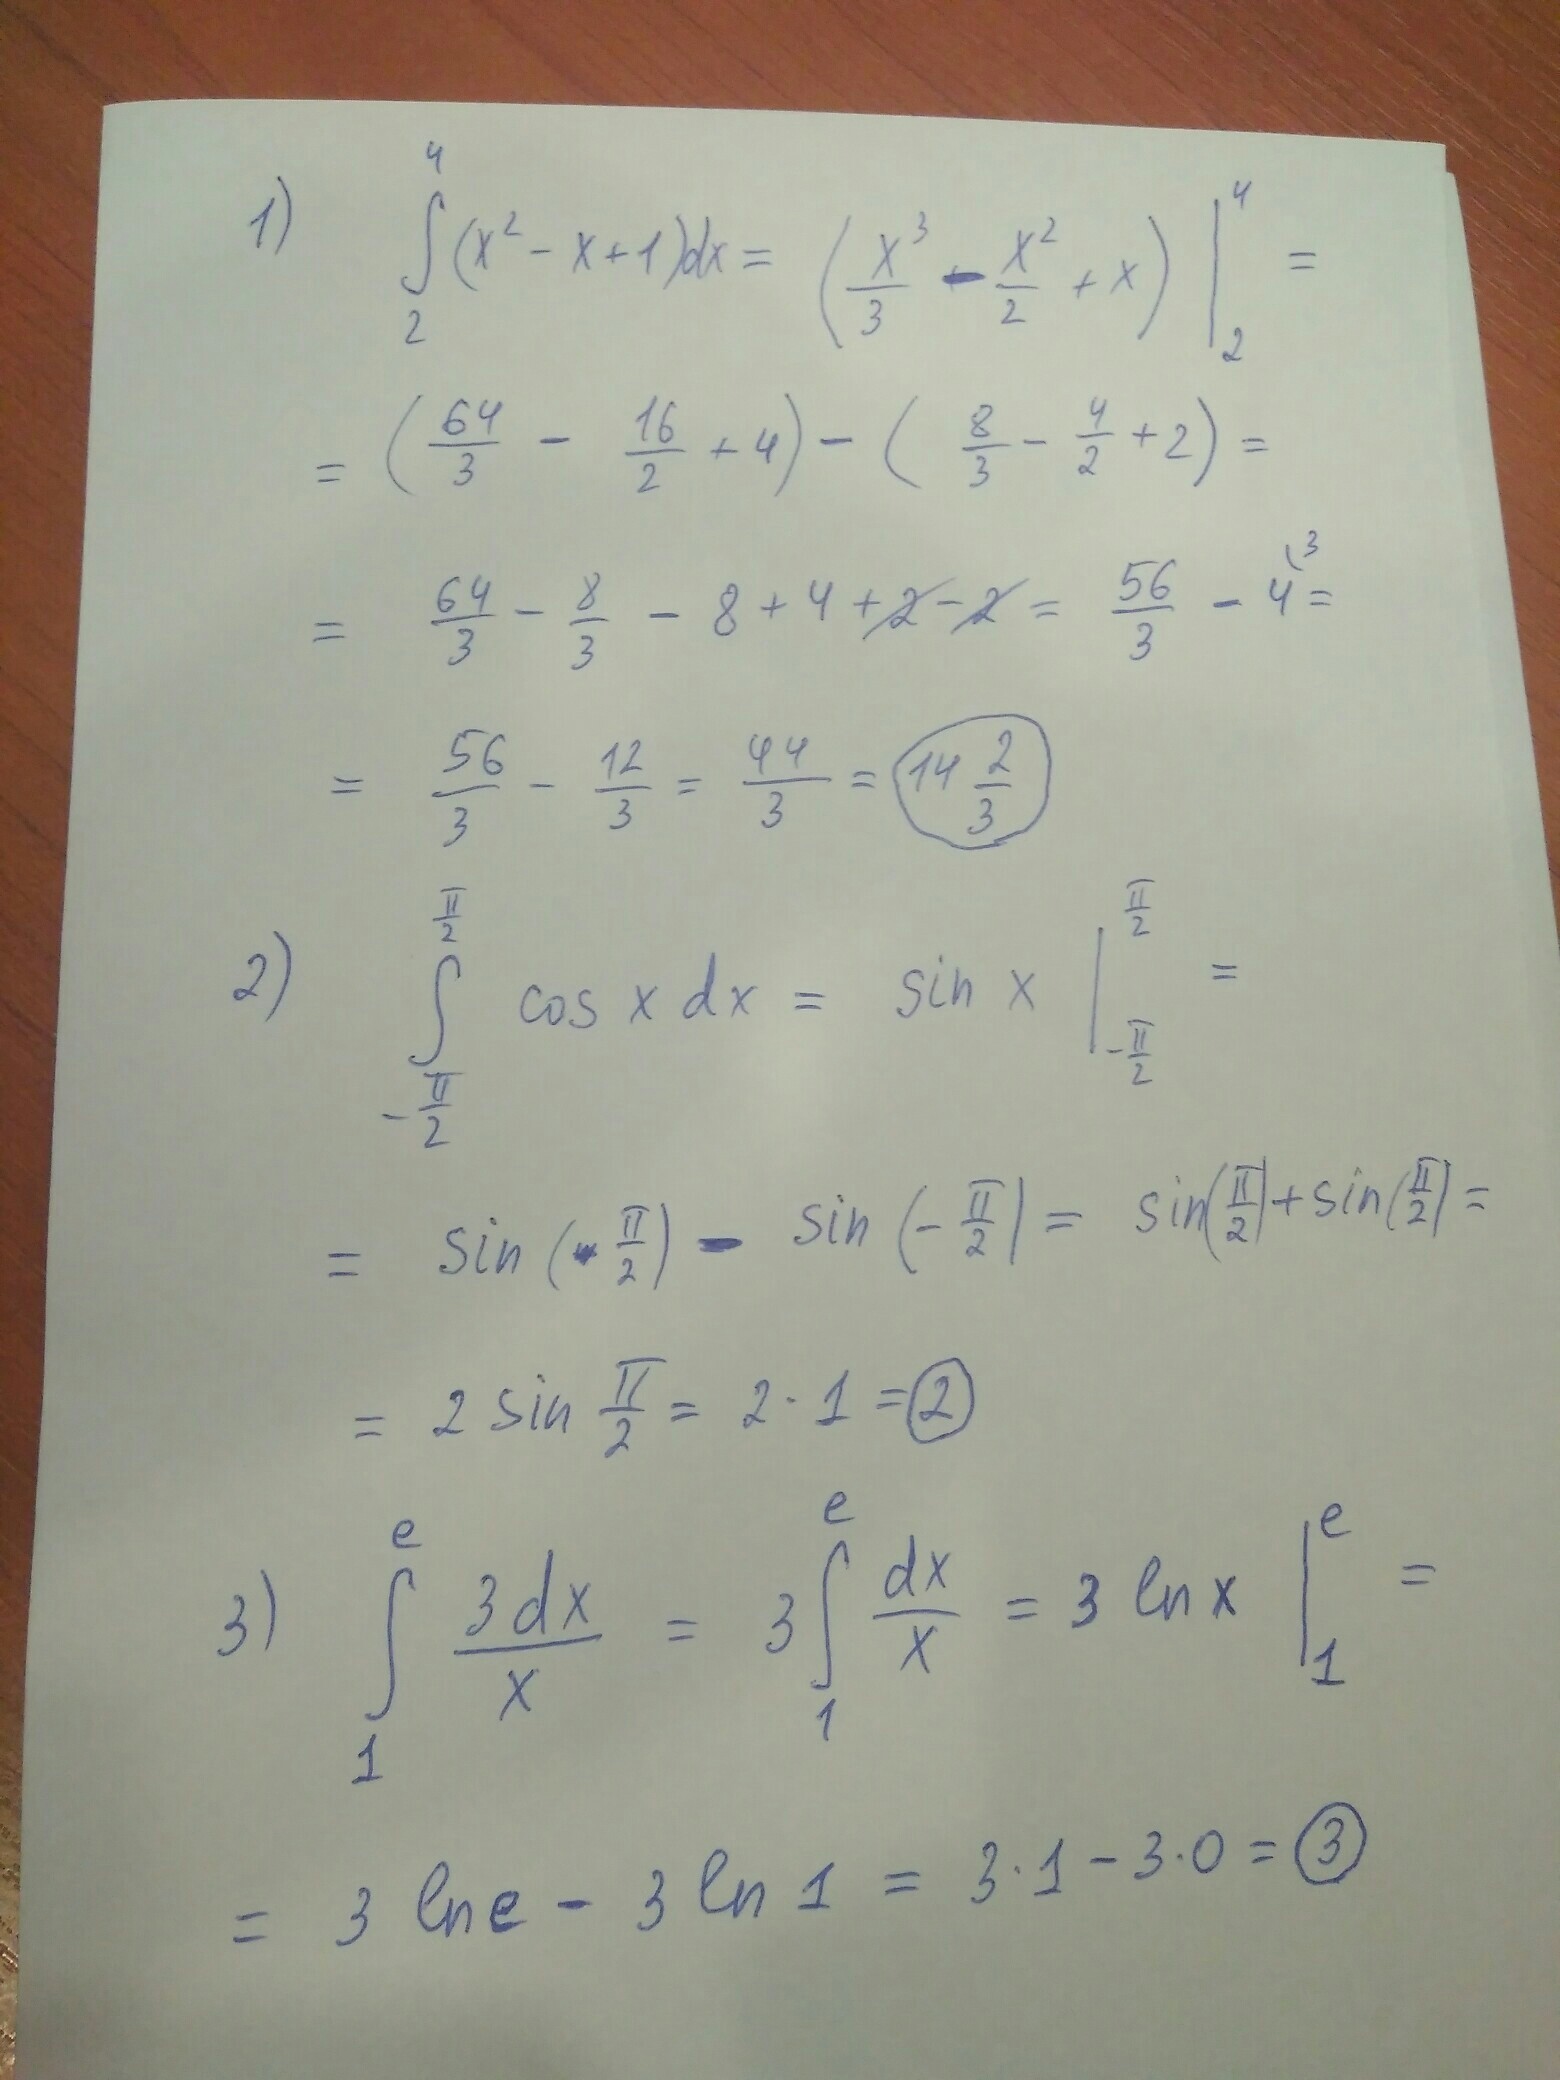 1) ∫₂⁴ (x² - x + 1)dx = (x³/3 - x²/2 + x) |₂⁴ =
= (64/3 - 16/2 + 4) - (8/3 - 4/2 + 2) =
= 64/3 - 8/3 - 8 + 4 + 2 - 2 = 56/3 - 4⁽³ =
= 56/3 - 12/3 = 44/3 = 14 2/3
2) ∫_{-π/2}^{π/2} cos x dx = sin x |_{-π/2}^{π/2} =
= sin (π/2) - sin (-π/2) = sin(π/2) + sin(π/2) =
= 2 sin π/2 = 2·1 = 2
3) ∫₁ᵉ 3dx/x = 3∫₁ᵉ dx/x = 3 ln x |₁ᵉ =
= 3 ln e - 3 ln 1 = 3·1 - 3·0 = 3